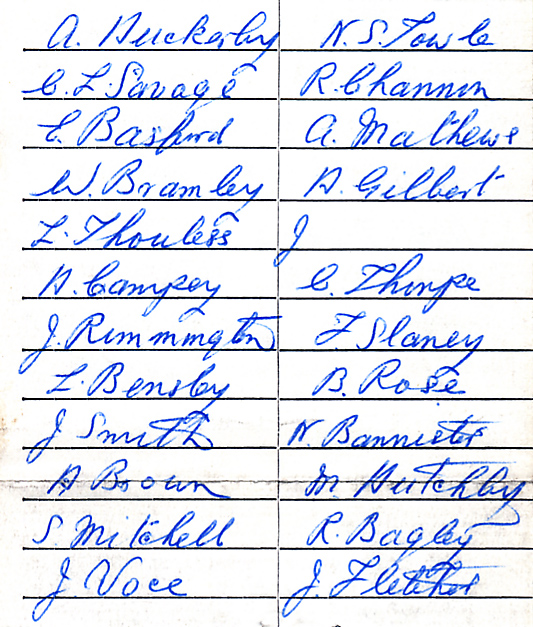 A. Huckerby N. S. Towle
C. L. Savage R. Channon
E. Basford A. Mathews
W. Bramley A. Gilbert
L. Thouless J
A. Campey C. Thorpe
J. Rimmington F. Slaney
L. Bensby B. Rose
J Smith N. Bannister
A Brown M. Hutchby
S. Mitchell R. Bagley
J. Voce J. Fletcher